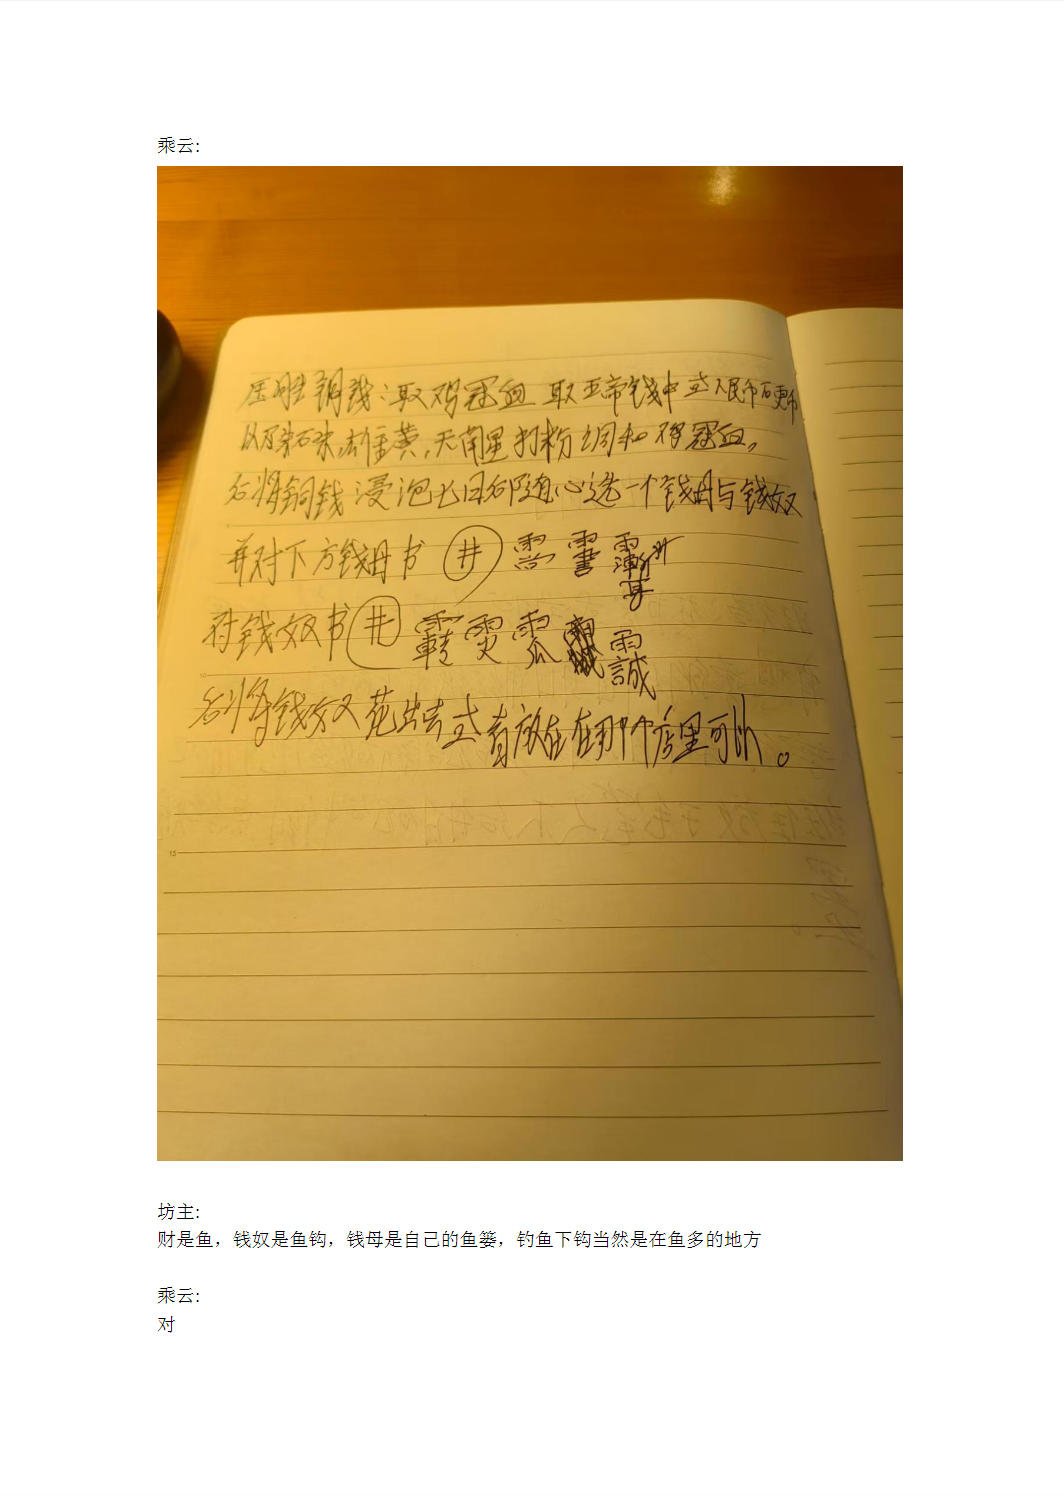 乘云:
压胜铜钱:取鸡冠血 取五帝钱中或人民币硬币
以及朱砂,雄黄,天南星打粉调和鸡冠血,
后将铜钱浸泡七日后随心选一个钱母与钱奴
并对下方钱母书 井
对钱奴书 井
后将钱奴花出去或者放在在那个房里可以。
15
坊主:
财是鱼，钱奴是鱼钩，钱母是自己的鱼篓，钓鱼下钩当然是在鱼多的地方
乘云:
对